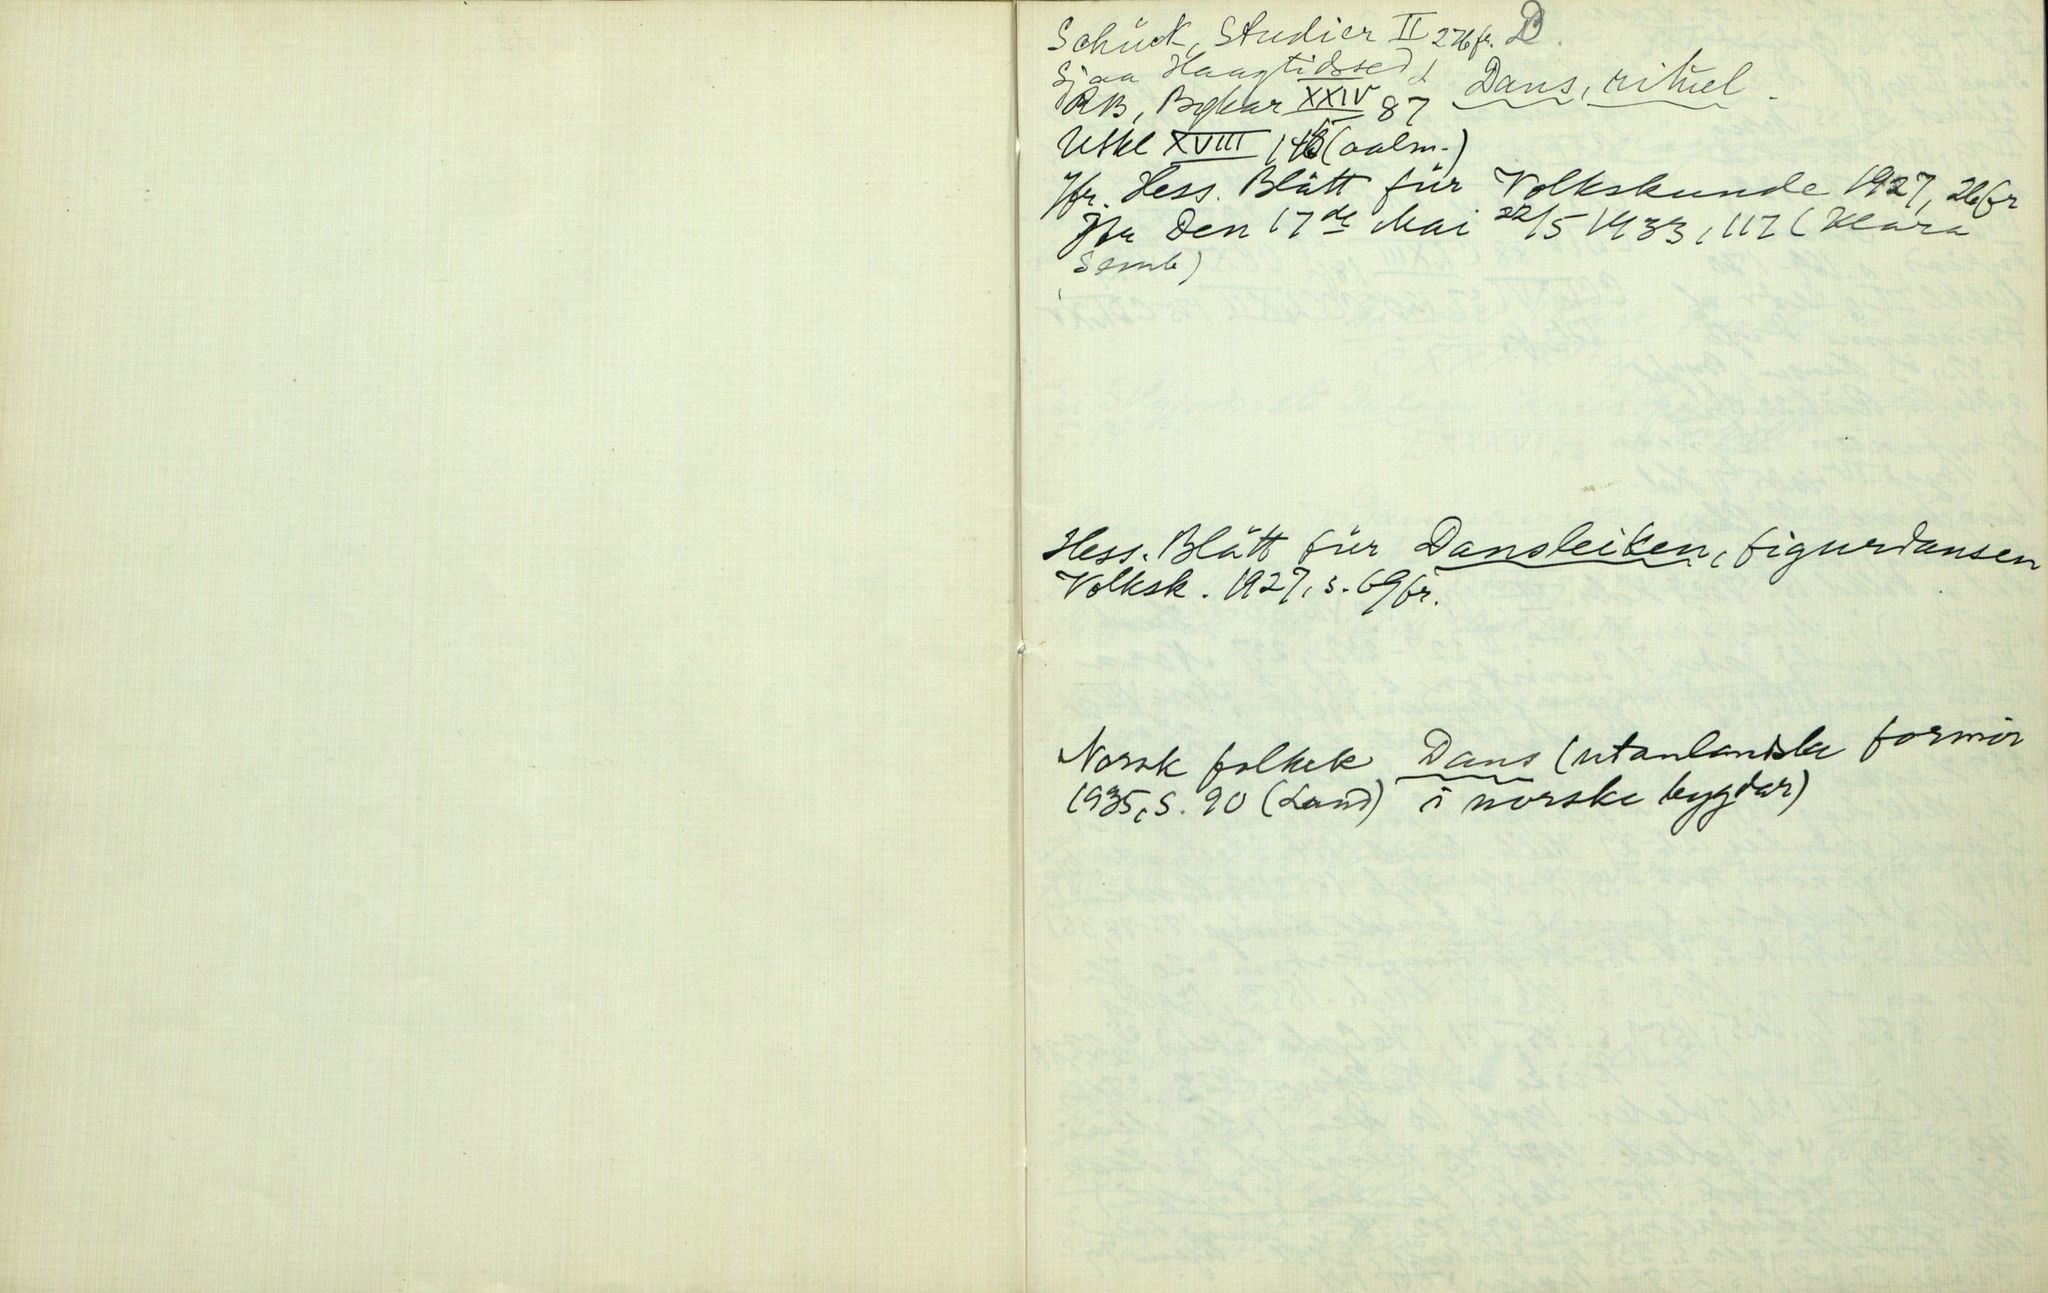 Schück, Studier II 276 fr. D.
Sjaa Haugtidssed 1 Dans, rituel.
RB, Bykar XXIV 87
Utkl XVIII 146 (aalm.)
Jfr. Hess. Blätt für Volkskunde 1927, 26 fr
Jfr Den 17de Mai 22/5 1933, 117 (Klara
Semb)
Hess. Blätt für Dansleiken, figurdansen
Volksk. 1927, s. 69 fr.
Norsk folkek Dans (utanlandske formir
1935, s. 90 (Land) i norske bygdar)